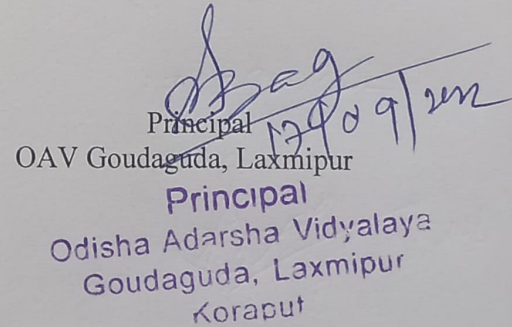 Principal
17/09/2022
OAV Goudaguda, Laxmipur
Principal
Odisha Adarsha Vidyalaya
Goudaguda, Laxmipur
Koraput